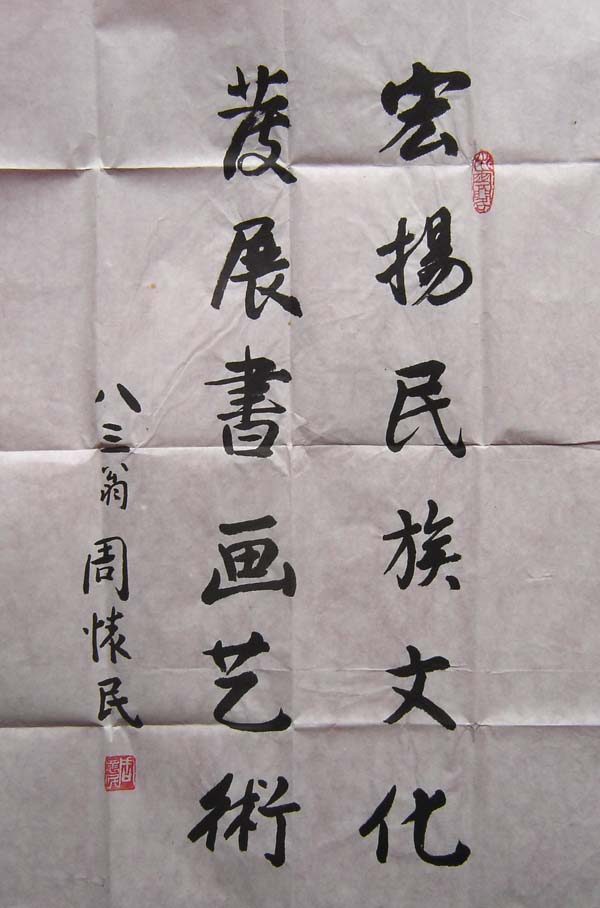 宏揚民族文化
发展書画艺術
八三翁周懐民